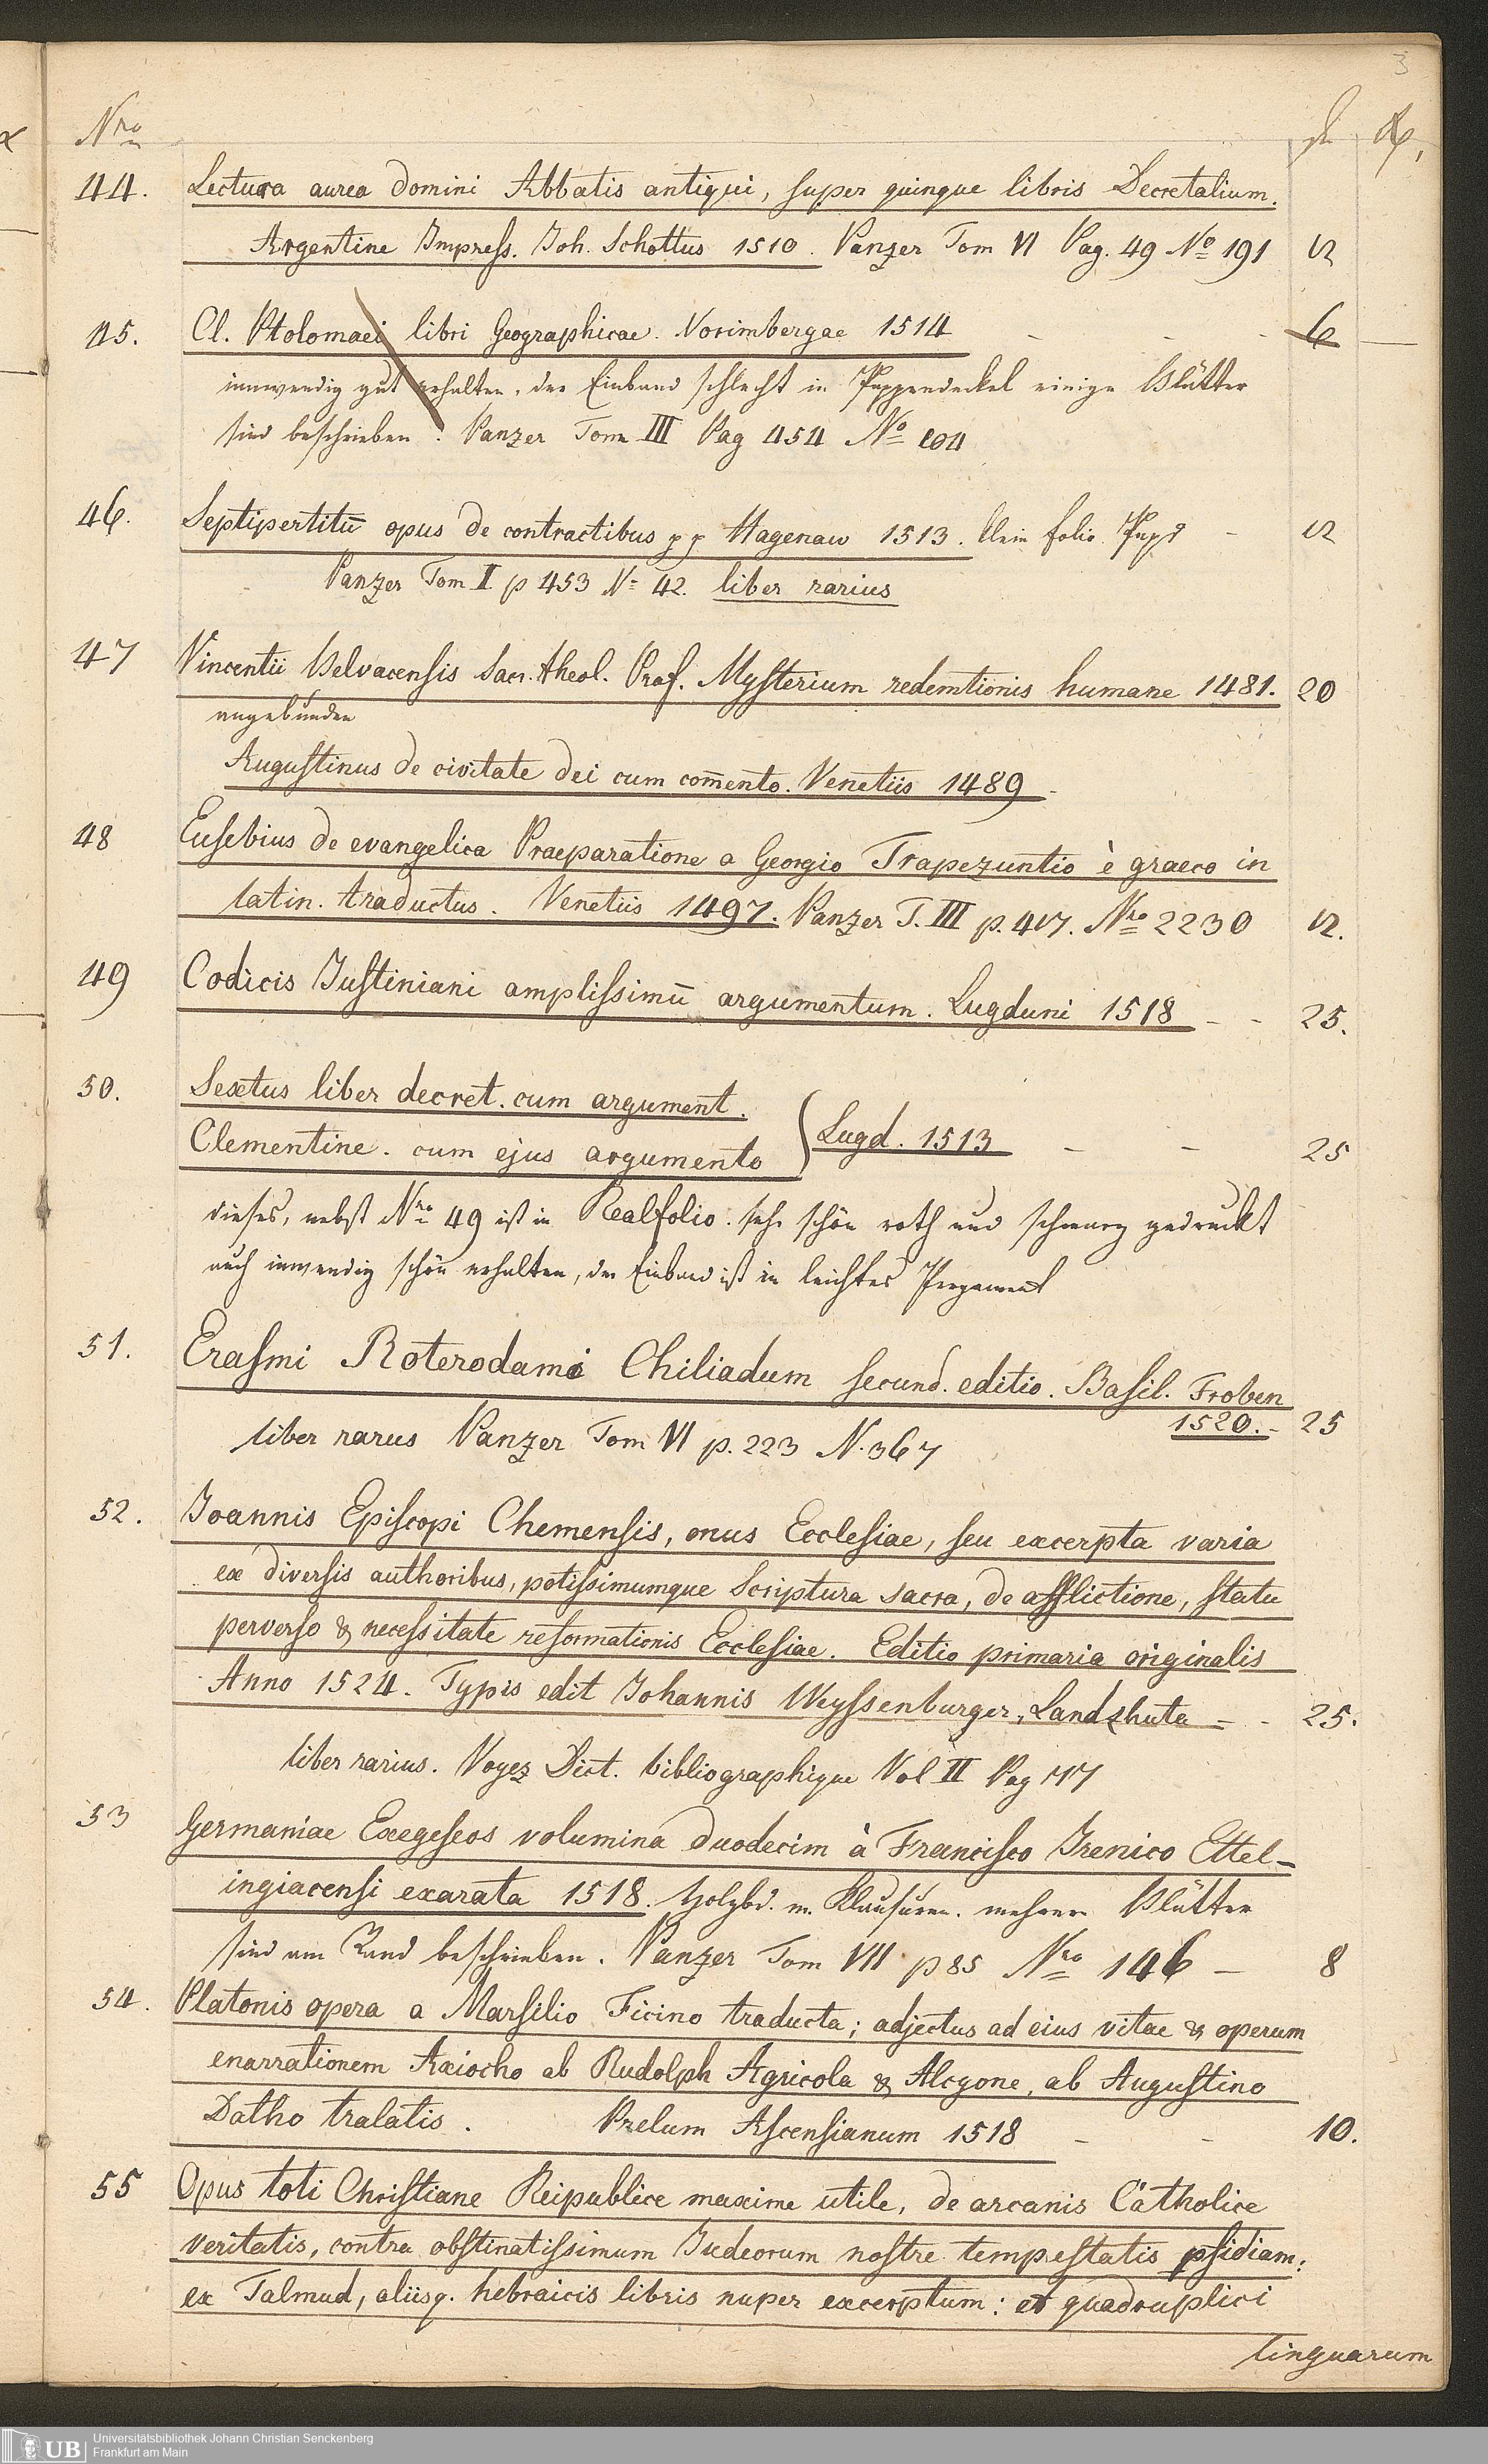 3
Nro
44. Lectura aurea domini Abbatis antiqui, super quinque libris Decretalium.
Argentine Impress. Joh. Schottus 1510. Panzer Tom VI Pag. 49 No 191 12
45. Cl. Ptolomaei libri Geographicae. Norimbergae 1514 - - - 6
innwendig gut erhalten, der Einband schlecht in Pappendeckel einige Blätter
sind beschrieben. Panzer Tom III Pag 454 No 104
46. Septipertitū opus de contractibus pp Hagenaw 1513. klein folio. Papd - 12
Panzer Tom I p 453 N= 42. liber rarius
47 Vincentii Belvacensis Sacr. theol. Prof. Mysterium redemtionis humane 1481. 20
angebunden
Augustinus de civitate dei cum com̄ento. Venetiis 1489 -
48 Eusebius de evangelica Praeparatione a Georgio Trapezuntio è graeco in
latin. traductus. Venetiis 1497. Panzer T. III p. 417. Nro 2230 12.
49 Codicis Justiniani amplissimū argumentum. Lugduni 1518 - - 25.
50. Sextus liber decret. cum argument.
Clementine. cum ejus argumento } Lugd. 1513 - - 25
dieses, nebst Nro 49 ist in Realfolio. sehr schön roth und schwarz gedruckt
auch inwendig schön erhalten, der Einband ist in leichtes Pergament
51. Erasmi Roterodami Chiliadum secund. editio. Basil. Froben
1520. - 25
liber rarus Panzer Tom VI p. 223 N. 367
52. Joannis Episcopi Chemensis, onus Ecclesiae, seu excerpta varia
ex diversis authoribus, potissimumque Scriptura sacra, de afflictione, statu
perverso & necessitate reformationis Ecclesiae. Editio primaria originalis
Anno 1524. Typis edit Johannis Weyssenburger, Landshuta - - 25.
liber rarius. Voyez Dict. bibliographique Vol II Pag 117
53 Germaniae Exegeseos volumina duodecim à Francisco Irenico Ettel-
ingiacensi exarata 1518. Holzbd. m. Klausuren. mehrere Blätter
sind am Rand beschrieben. Panzer Tom VII p 85 Nro 146 - 8
54. Platonis opera a Marsilio Ficino traducta; adjectus ad eius vitae & operum
enarrationem Axiocho ab Rudolph Agricola & Alcyone, ab Augustino
Datho tralatis. Prelum Ascensianum 1518 - - 10.
55 Opus toti Christiane Reipublice maxime utile, de arcanis Catholice
veritatis, contra obstinatissimum Judeorum nostre tempestatis psidiam:
ex Talmud, aliisq. hebraicis libris nuper excerptum: et quadruplici
linguarum
UB Universitätsbibliothek Johann Christian Senckenberg
Frankfurt am Main